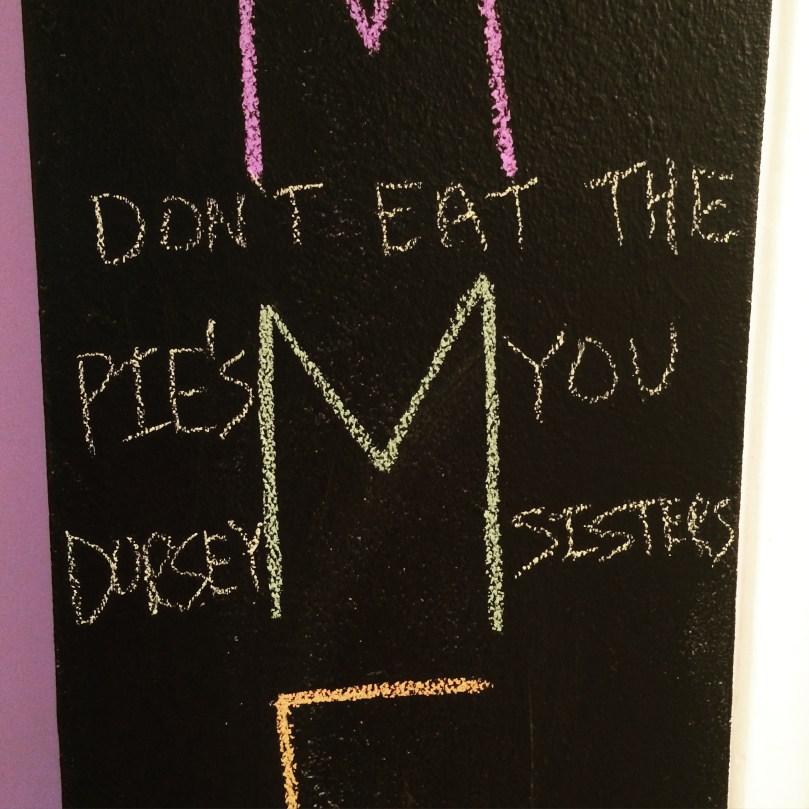 M
DON'T EAT THE
PIE'S M YOU
DORSEY SISTERS